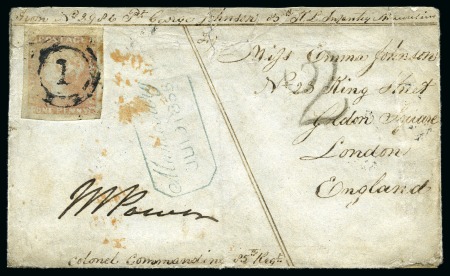 From No 2986 Pt George Johnson 35th Rl Infantry
POSTAGE
1
2
Miss Emma Johnson
No 23 King Street
Golden Square
London
England
JU
W Power
Colonel Commanding 35th Regt